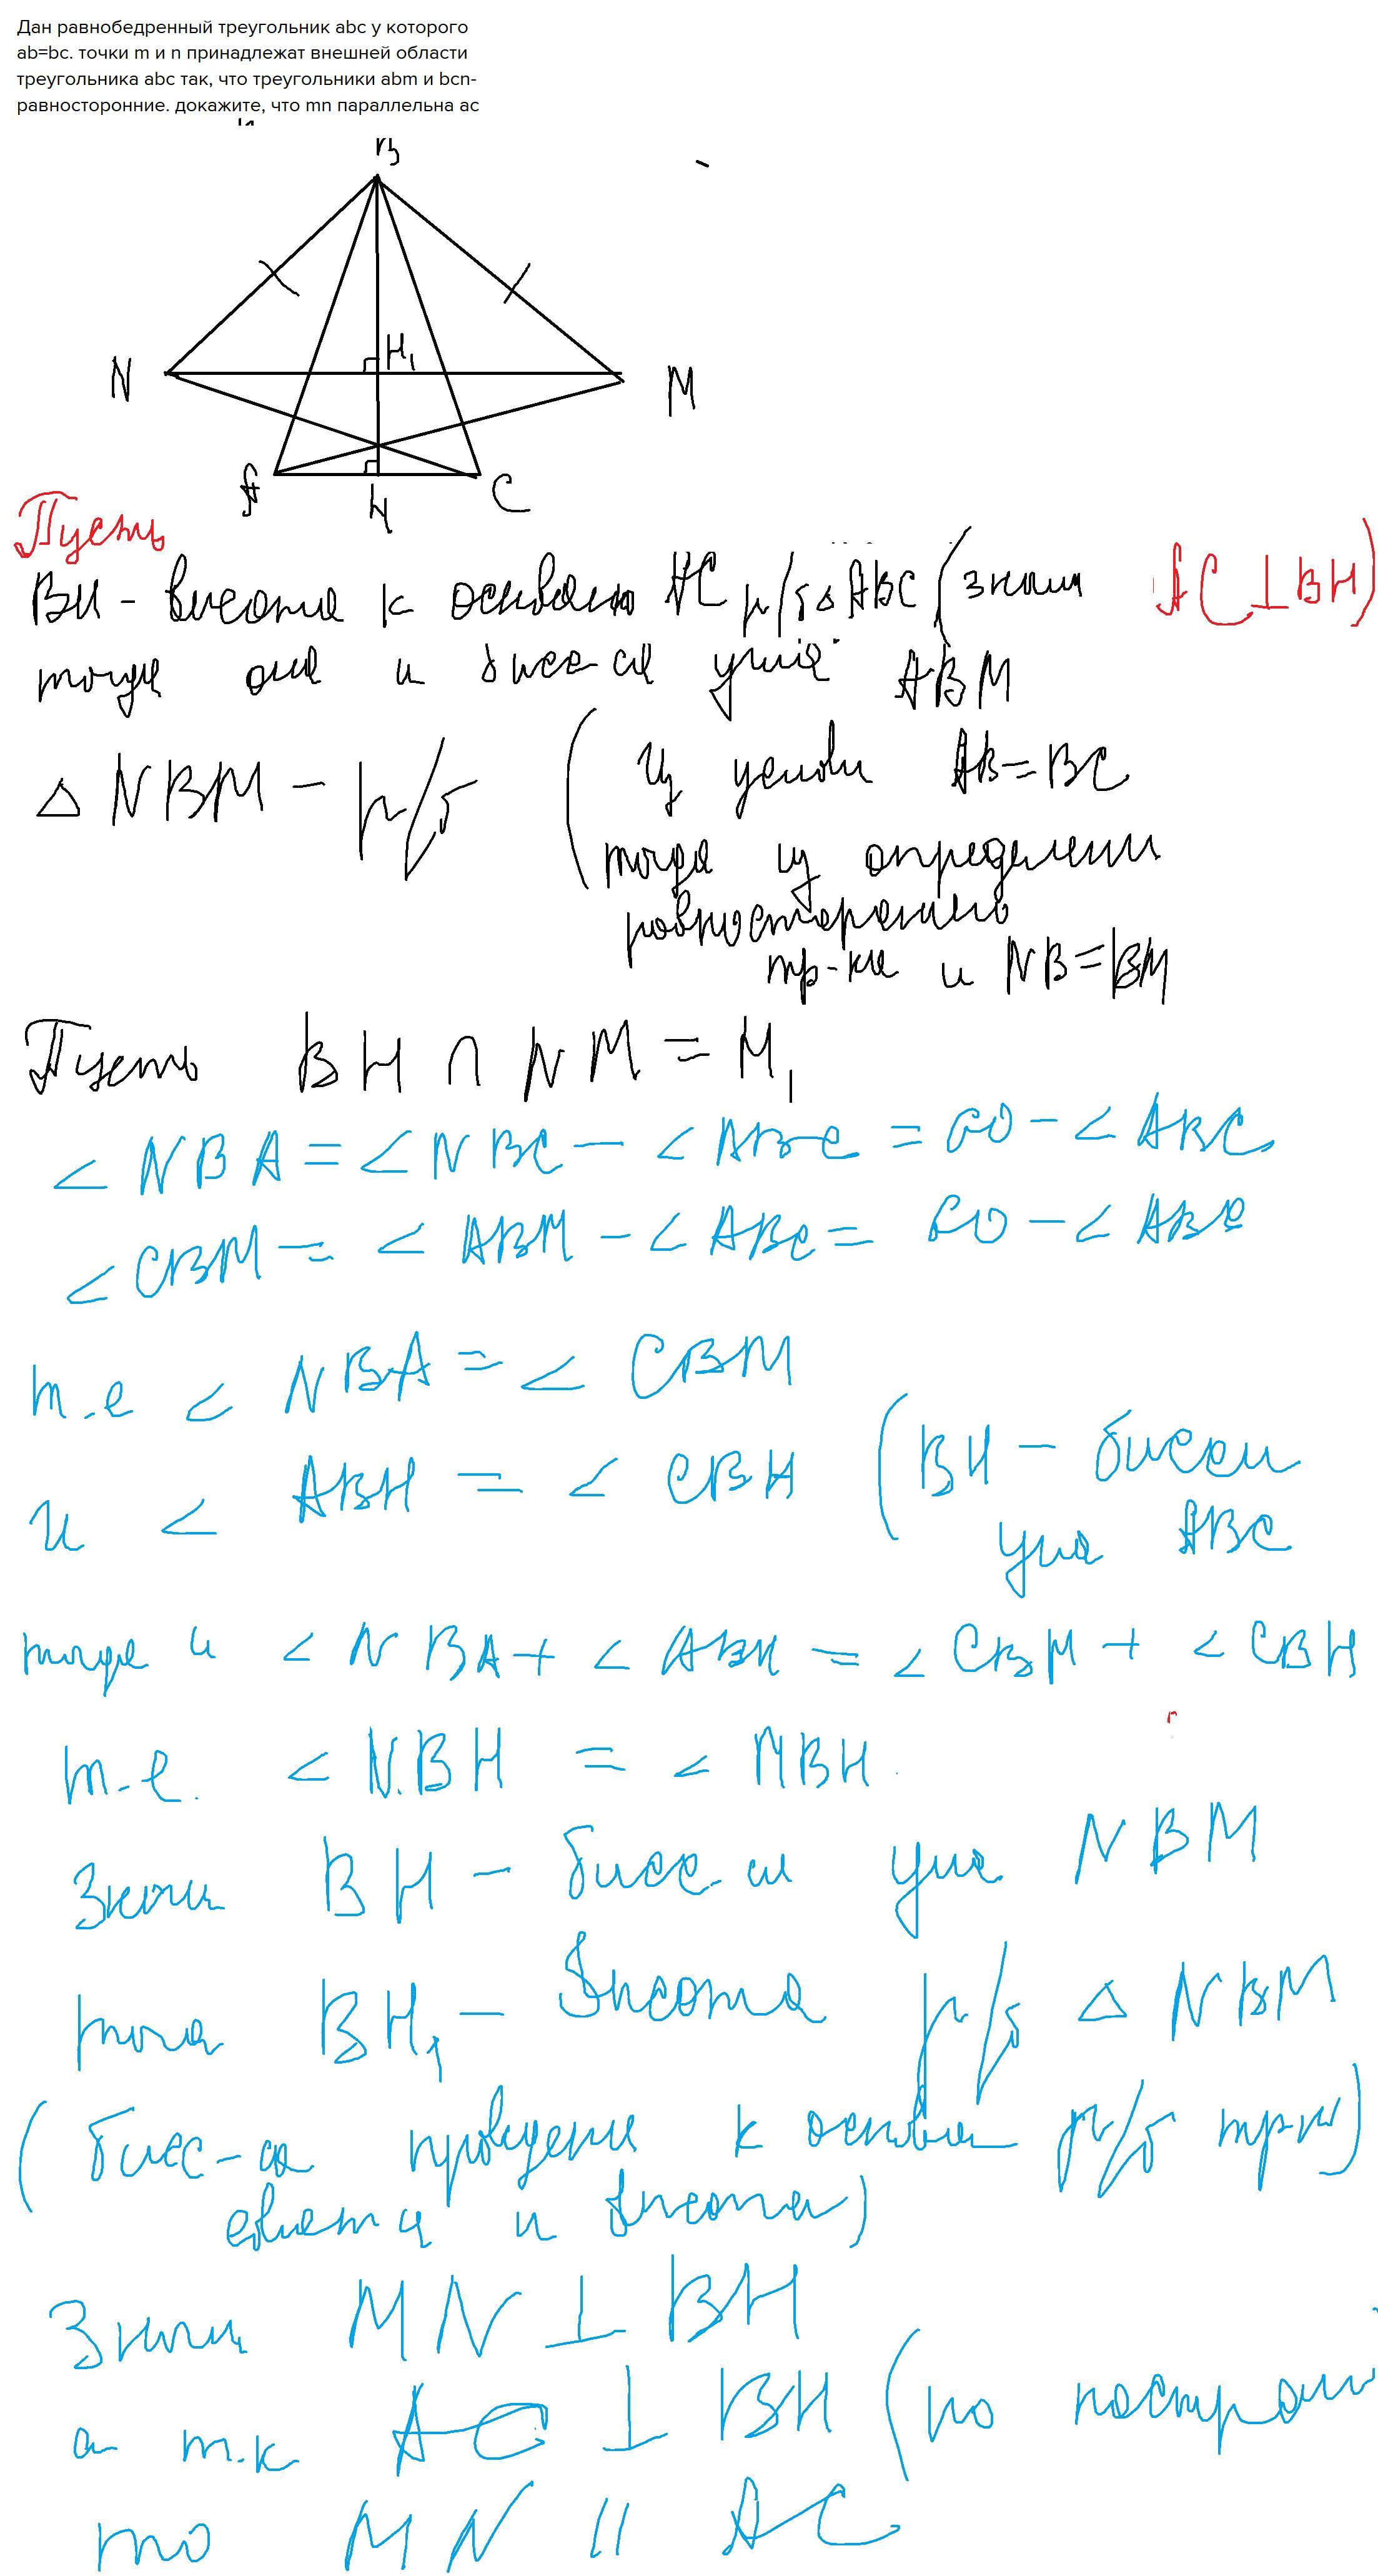 Дан равнобедренный треугольник abc у которого
ab=bc. точки m и n принадлежат внешней области
треугольника abc так, что треугольники abm и bcn-
равносторонние. докажите, что mn параллельна ac
B
N
H₁
M
A
H
C
Пусть
BH - высота к основанию AC р/б △ ABC (значит AC ⊥ BH)
тогда она и бисс-са угла ABM
△ NBM - р/б (Из услови AB = BC
тогда из определения
равностороннего
тр-ка и NB = BM
Пусть BH ∩ NM = H₁
∠ NBA = ∠ NBC - ∠ ABC = 60 - ∠ ABC
∠ CBM = ∠ ABM - ∠ ABC = 60 - ∠ ABC
т.е ∠ NBA = ∠ CBM
и ∠ ABH = ∠ CBH (BH - биссек
угла ABC
тогда и ∠ NBA + ∠ ABH = ∠ CBM + ∠ CBH
т.е. ∠ NBH = ∠ MBH
Знач BH - бисс-са угла NBM
тогда BH₁ - высота р/б △ NBM
(бисс-са проведеня к основан р/б тр-ка)
является и высотой)
Знач MN ⊥ BH
а т.к AC ⊥ BH (по построени
то MN || AC